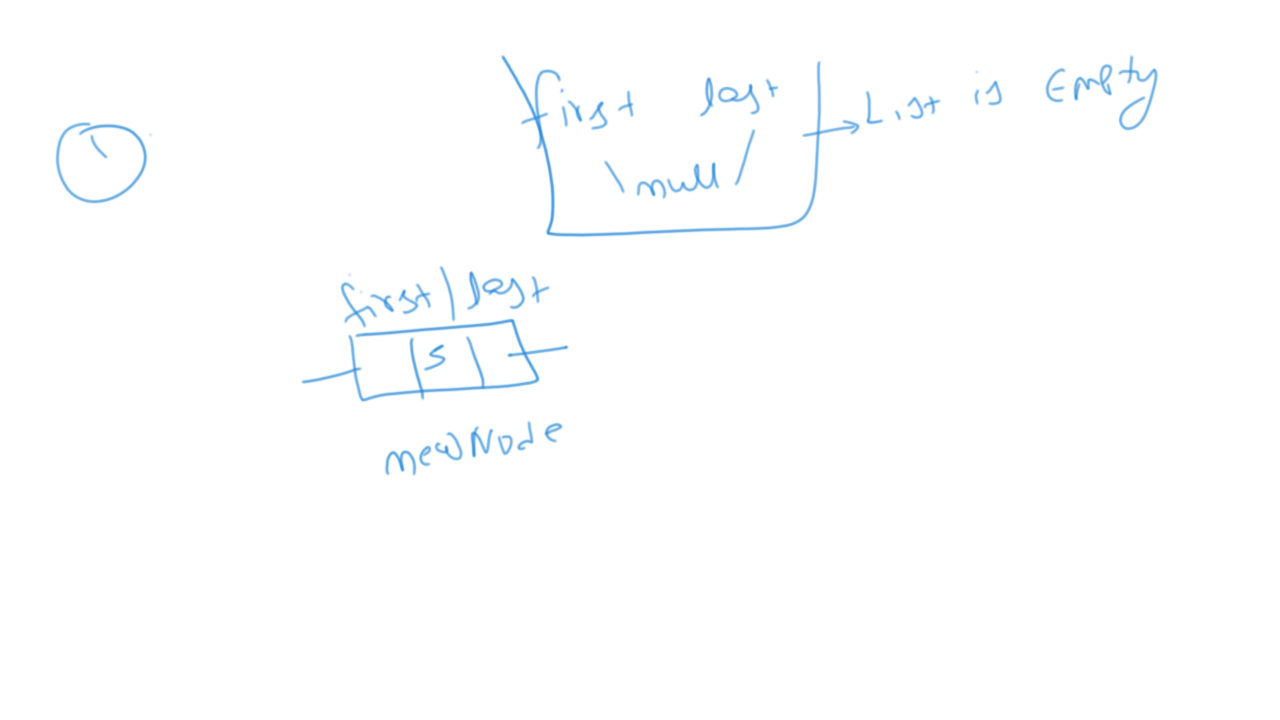 first last
\null/
→ List is Empty
first|last
|5|
newNode